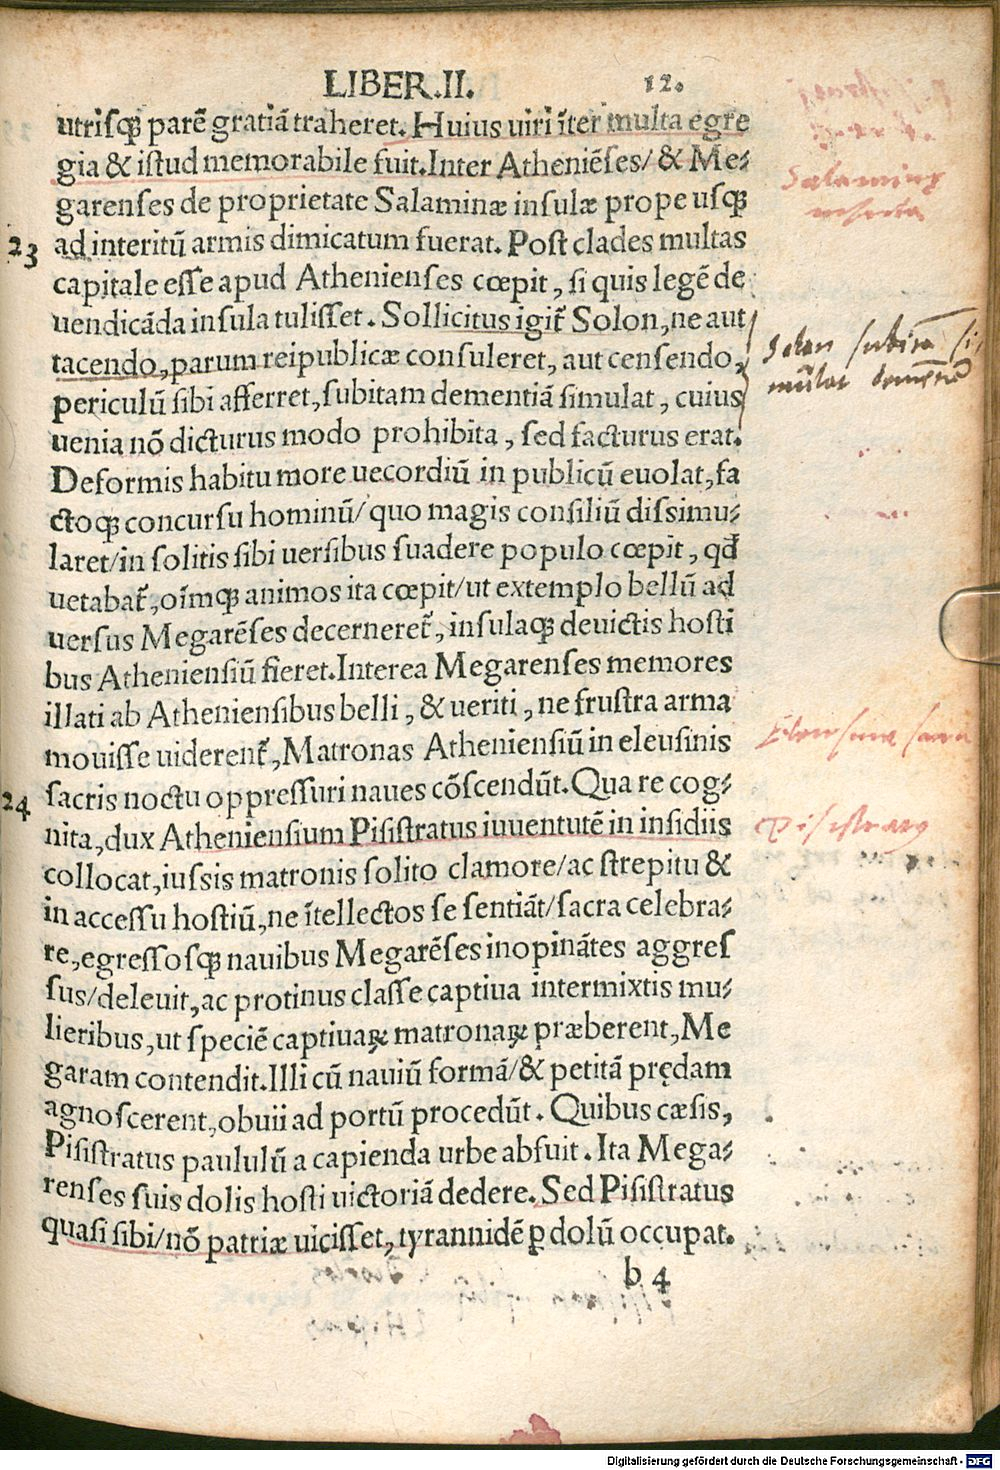 LIBER.II. 12.
utrisqꝫ parē gratiā traheret. Huius uiri īter multa egre
gia & istud memorabile fuit.Inter Atheniēses/ & Me⸗
garenses de proprietate Salaminæ insulæ prope usqꝫ
23 ad interitū armis dimicatum fuerat. Post clades multas
capitale esse apud Athenienses cœpit, si quis legē de
uendicāda insula tulisset. Sollicitus igit᷑ Solon,ne aut
tacendo,parum reipublicæ consuleret, aut censendo,
periculū sibi afferret,subitam dementiā simulat, cuius
uenia nō dicturus modo prohibita, sed facturus erat.
Deformis habitu more uecordiū in publicū euolat,fa
ctoqꝫ concursu hominū/ quo magis consiliū dissimu⸗
laret/in solitis sibi uersibus suadere populo cœpit, qđ
uetabat᷑,oīmqꝫ animos ita cœpit/ut extemplo bellū ad
uersus Megarēses decerneret᷑,insulaqꝫ deuictis hosti
bus Atheniensiū fieret.Interea Megarenses memores
illati ab Atheniensibus belli, & ueriti, ne frustra arma
mouisse uiderent᷑,Matronas Atheniensiū in eleusinis
24 sacris noctu oppressuri naues cōscendūt. Qua re cog⸗
nita,dux Atheniensium Pisistratus iuuentutē in insidiis
collocat,iussis matronis solito clamore/ac strepitu &
in accessu hostiū,ne ītellectos se sentiāt/sacra celebra⸗
re,egressosqꝫ nauibus Megarēses inopinātes aggres
sus/deleuit,ac protinus classe captiua intermixtis mu⸗
lieribus,ut speciē captiuaꝝ matronaꝝ præberent,Me
garam contendit.Illi cū nauiū formā/& petitā prędam
agnoscerent,obuii ad portū procedūt. Quibus cæsis,
Pisistratus paululū a capienda urbe abfuit. Ita Mega⸗
renses suis dolis hosti uictoriā dedere. Sed Pisistratus
quasi sibi/nō patriæ uicisset,tyrannidē ꝑ dolū occupat.
b 4
Solon subitā si⸗
mulat
sacra
Pisistratus
Digitalisierung gefördert durch die Deutsche Forschungsgemeinschaft - DFG